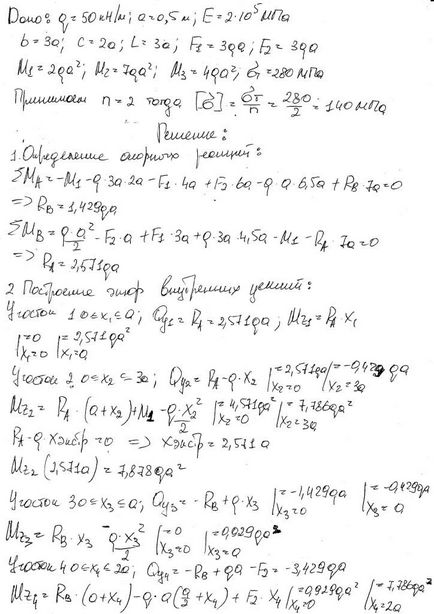 Дано: q = 50 кН/м; a = 0,5 м; E = 2·10⁵ МПа
b = 3a; c = 2a; L = 3a; F₁ = 3qa; F₂ = 3qa
M₁ = 2qa²; M₂ = 7qa²; M₃ = 4qa²; σт = 280 МПа
Принимаем n = 2 тогда [σ] = σт/n = 280/2 = 140 МПа
Решение:
1. Определение опорных реакций:
ΣM_A = -M₁ - q·3a·2a - F₁·4a + F₂·6a - q·a·6,5a + R_B·7a = 0
=> R_B = 1,429qa
ΣM_B = q·a²/2 - F₂·a + F₁·3a + q·3a·4,5a - M₁ - R_A·7a = 0
=> R_A = 2,571qa
2 Построение эпюр внутренних усилий:
Участок 1 0≤x₁≤a; Qy₁ = R_A = 2,571qa; Mz₁ = R_A·x₁
|=0 x₁=0 |=2,571qa² x₁=a
Участок 2 0≤x₂≤3a; Qy₂ = R_A - q·x₂ |=2,571qa x₂=0 |=-0,429qa x₂=3a
Mz₂ = R_A·(a+x₂) + M₁ - q·x₂²/2 |=4,571qa² x₂=0 |=7,786qa² x₂=3a
R_A - q·xэкстр = 0 => xэкстр = 2,571a
Mz₂(2,571a) = 7,878qa²
Участок 3 0≤x₃≤a; Qy₃ = -R_B + q·x₃ |=-1,429qa x₃=0 |=-0,429qa x₃=a
Mz₃ = R_B·x₃ - q·x₃²/2 |=0 x₃=0 |=0,929qa² x₃=a
Участок 4 0≤x₄≤2a; Qy₄ = -R_B + qa - F₂ = -3,429qa
Mz₄ = R_B·(a+x₄) - q·a(a/2+x₄) + F₂·x₄ |=0,929qa² x₄=0 |=7,786qa² x₄=2a